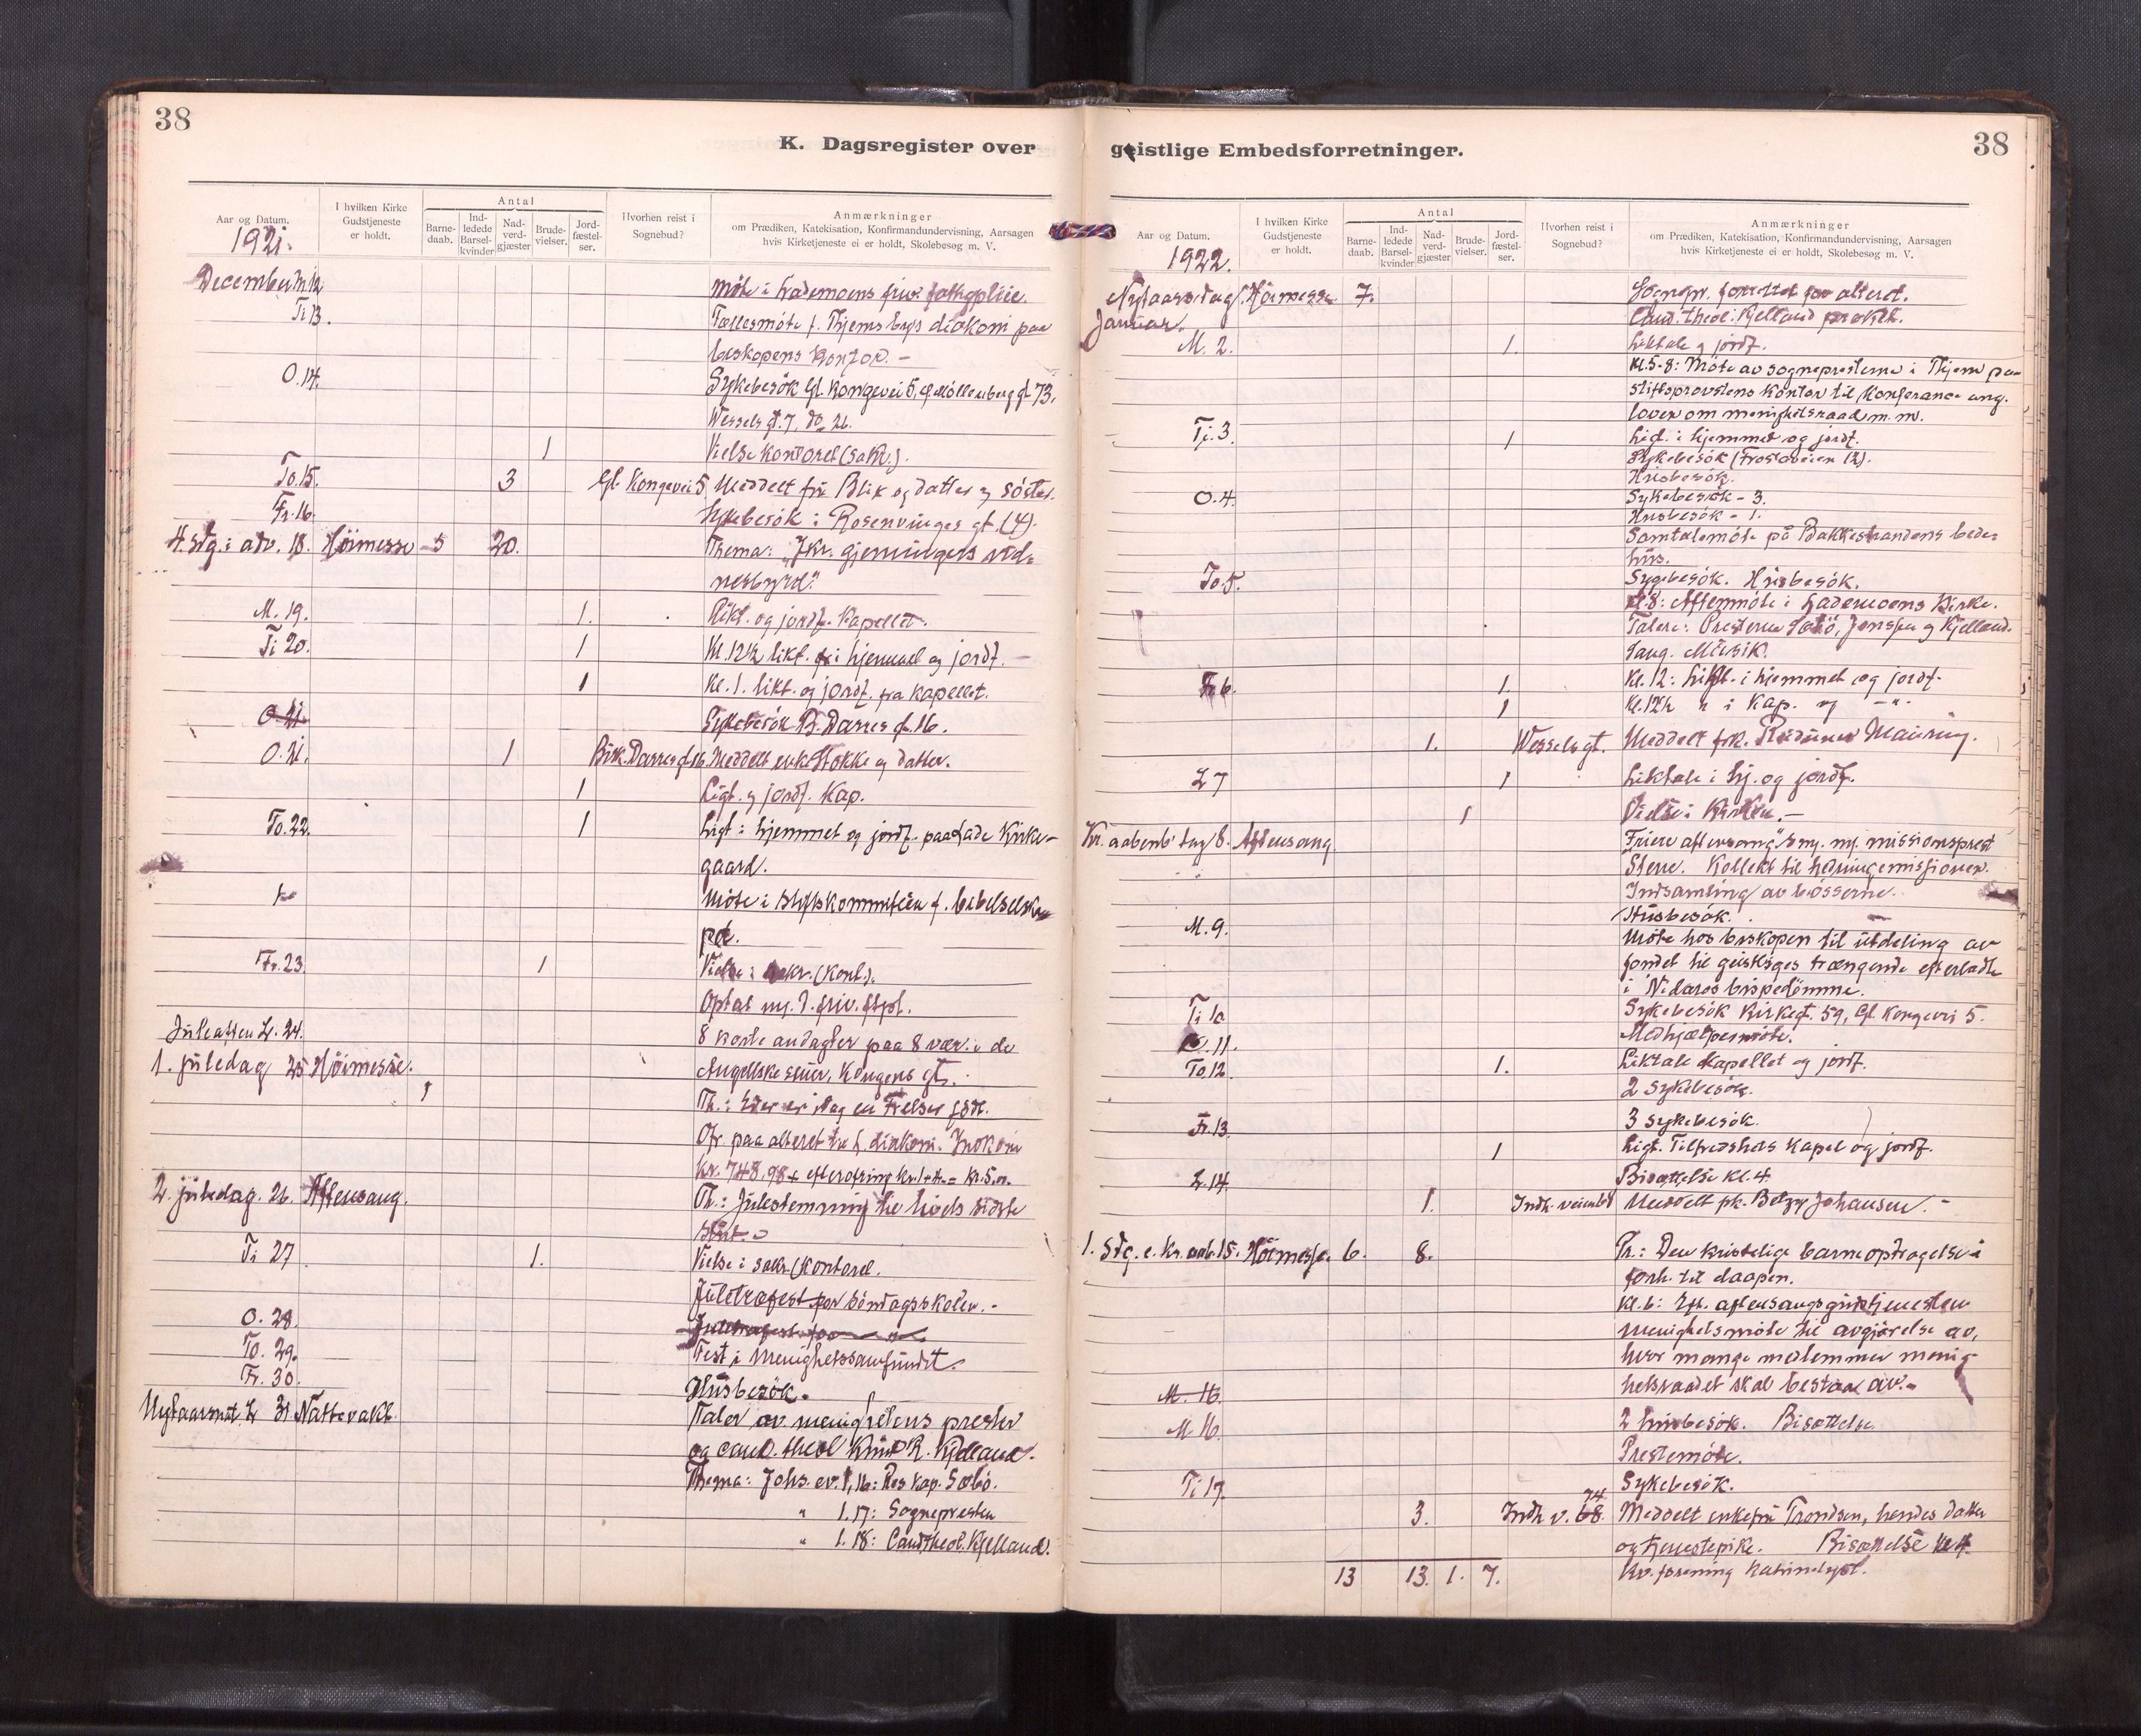 38
K. Dagsregister over
Aar og Datum.
1921.
I hvilken Kirke Gudstjeneste er holdt.
Antal
Barne-daab.
Ind-ledede Barsel-kvinder
Nad-verd-gjæster
Brude-vielser.
Jord-fæstel-ser.
Hvorhen reist i Sognebud?
Anmærkninger
om Prædiken, Katekisation, Konfirmandundervisning, Aarsagen
hvis Kirketjeneste ei er holdt, Skolebesøg m. V.
December M. 12 Möte i Lademoens friv. fattigpleie.
Ti 13. Fællesmöte f. Thjems bys diakoni paa
biskopens kontor. -
O. 14. Sykebesök Gl. Kongevei 5, Möllenberg gt 73,
Wessels gt. 7, do 26.
1 Vielse kontoret (sakr.).
To. 15. 3 Gl. Kongevei 5. Meddelt fru Blik og datter og söster.
Fr. 16. Sykebesök i Rosenvinges gt. (4).
4. sdg. i adv. 18. Höimesse 5 20. Thema: Jkr. gjerningers vid-
nesbyrd.
M. 19. 1. Likt. og jordf. kapellet.
Ti 20. 1 Kl. 12½ likt. i hjemmet og jordf. -
1 Kl. 1. likt. og jordf. fra kapellet.
O. 21. Sykebesök B. Darres gt. 16.
O. 21. 1 Bisk. Darres gt 16. Meddelt enke Stokke og datter.
1 Ligt. og jordf. Kap.
To. 22. 1 Ligt i hjemmet og jordf. paa Lade Kirke-
gaard.
Möte i stiftskommiteen f. bibelselska-
pet.
Fr. 23. 1 Vielse i sakr. (kont.).
Optat
Juleaften L. 24. 8 korte andagter paa 8 vær. i de
1. juledag 25 Höimesse. Angellske stuer, Kongens gt.
1 Th.: Eder er idag en Frelser född.
Ofr. paa alteret til diakoni. Indkom
kr. 748.98 + efterofring kr. 1 + 4. = kr. 5.00.
2. juledag. 26. Aftensang. Th.: Julestemning til livets sidste
stund. -
Ti 27. 1. Vielse i sakr. (kontoret.
Juletræfest for söndagsskolen. -
O. 28.
To. 29. Fest i Menighetssamfundet.
Fr. 30. Husbesök.
Nytaarsnat L 31 Nattevakt. Taler av menighetens prester
og cand. theol Knut R. Kjelland.
Thema: Johs. ev. 1, 16: Res kap. Sæbö.
" 1. 17: Sognepresten
" 1. 18: Cand theol. Kjelland.
38
geistlige Embedsforretninger.
Aar og Datum.
1922.
I hvilken Kirke Gudstjeneste er holdt.
Antal
Barne-daab.
Ind-ledede Barsel-kvinder
Nad-verd-gjæster
Brude-vielser.
Jord-fæstel-ser.
Hvorhen reist i Sognebud?
Anmærkninger
om Prædiken, Katekisation, Konfirmandundervisning, Aarsagen
hvis Kirketjeneste ei er holdt, Skolebesøg m. V.
Nytaarsdag Höimesse 7. Sognepr. forrettet for alteret.
Januar. Cand. theol. Kjelland prækte.
M. 2. 1. Liktale og jordf.
Kl. 5-8: Möte av sogneprestene i Thjem paa
stiftsprovstens kontor til konferance ang.
loven om menighetsraad m. m.
Ti. 3. 1 Ligt. i hjemmet og jordf.
Sykebesök (Frostaveien 12).
Husbesök.
O. 4. Sykebesök - 3.
Husbesök - 1.
Samtalemöte på Bakkestrandens bede-
hus.
To. 5. Sygebesök. Husbesök.
Kl. 8: Aftenmöte i Lademoens Kirke.
Talere: Presterne Sæbö, Jenssen og Kjelland.
Sang. Musik.
Fr. 6. 1. Kl. 12: Likt. i hjemmet og jordf.
1 Kl. 12½ " i Kap. og - " -
1. Wessels gt. Meddelt frk.
L 7 1 Liktale i hj. og jordf.
1 Vielse i Kirken. -
Kr. aabenb. dag 8. Aftensang. Friere aftensang v. missionsprest
Sterre. Kollekt til hedningemissionen.
Indsamling av bösserne.
M. 9. Husbesök.
Möte hos biskopen til utdeling av
fondet til geistliges trængende efterladte
i Nidaros bispedömme.
Ti 10 Sykebesök Kirkegt. 59, Gl. Kongevei 5.
O. 11. Medhjælpermöte.
To. 12. 1. Liktale kapellet og jordf.
2 Sykebesök.
Fr. 13. 3 Sykebesök.
1 Ligt. Tilfredshets kapel og jordf.
L. 14. Bisættelse kl. 4.
1. Indh. veien Meddelt pk. Borgny Johansen. -
1. Sdg. e. Kr. aab. 15. Höimesse. 6. 8. Pr.: Den kristelige barneopdragelse i
forh. til daapen.
Kl. 6: Eft. aftensangsgudstjenesten
menighetsmöte til avgjörelse av,
hvor mange medlemmer menig-
hetsraadet skal bestaa av. -
M. 16.
M 16. 2 husbesök. Bisættelse.
Prestemöte.
Ti 17. Sykebesök.
3. Indh v. 68. 74. Meddelt enkefru Trondsen, hendes datter
og tjenestepike. Bisættelse kl 4.
13 13. 1. 7. Kv. forening Katrinelyst.